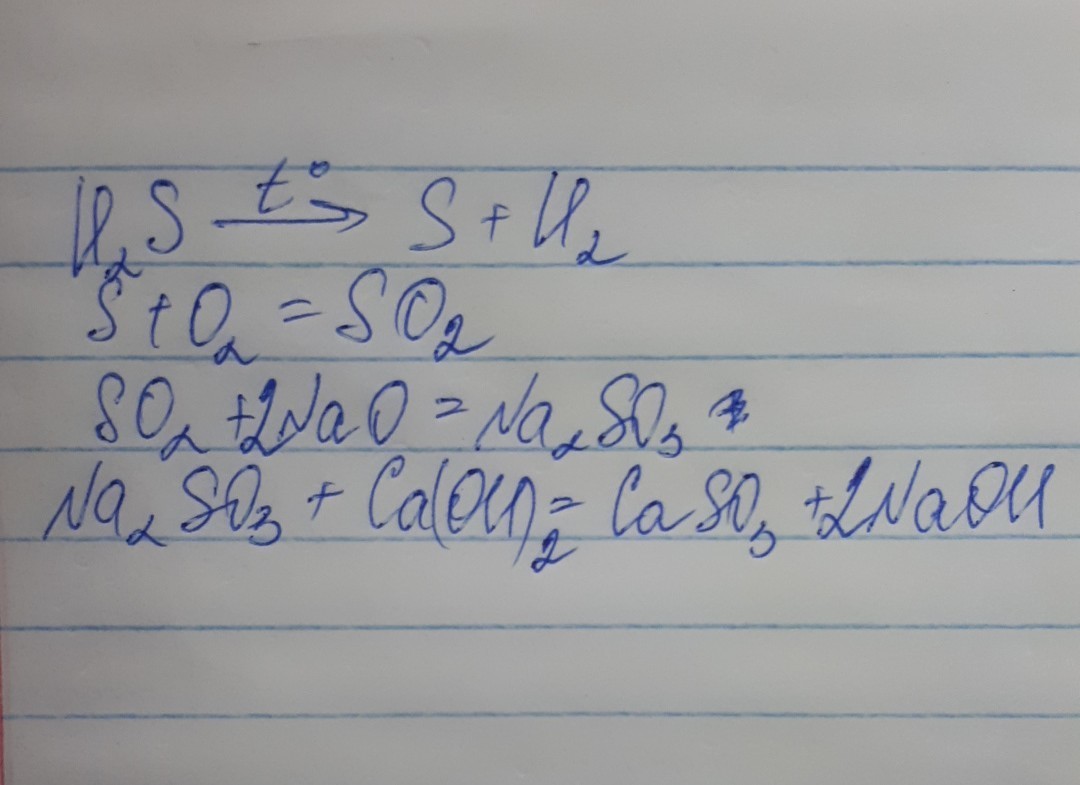 H₂S t°→ S + H₂
S + O₂ = SO₂
SO₂ + 2NaO = Na₂SO₃
Na₂SO₃ + Ca(OH)₂ = CaSO₃ + 2NaOH